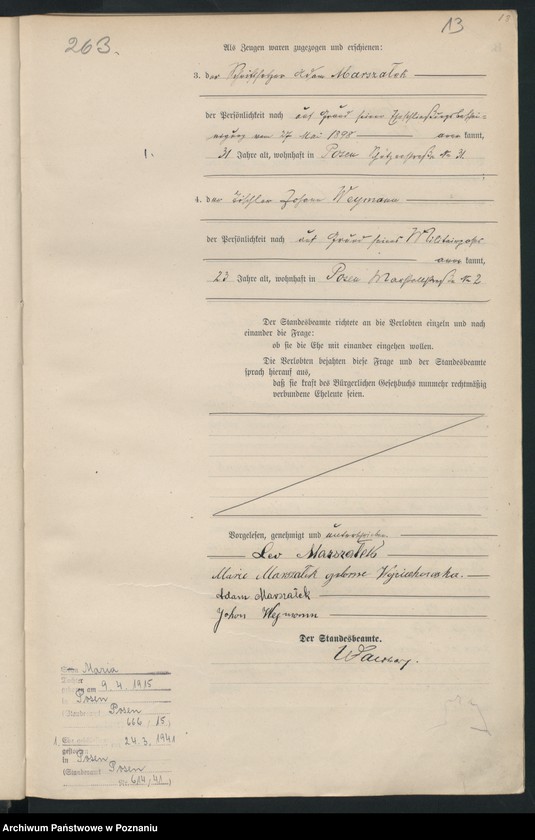 263.
13
Als Zeugen waren zugezogen und erschienen:
3. der Schriftsetzer Adam Marszałek
der Persönlichkeit nach auf Grund seiner Eheschließungsbeschei-
nigung vom 27 Mai 1898 kannt,
31 Jahre alt, wohnhaft in Posen № 31.
1.
4. der Tischler Johann Weymann
der Persönlichkeit nach auf Grund seines Militairpasses
kannt,
23 Jahre alt, wohnhaft in Posen № 2
Der Standesbeamte richtete an die Verlobten einzeln und nach
einander die Frage:
ob sie die Ehe mit einander eingehen wollen.
Die Verlobten bejahten diese Frage und der Standesbeamte
sprach hierauf aus,
daß sie kraft des Bürgerlichen Gesetzbuchs nunmehr rechtmäßig
verbundene Eheleute seien.
Vorgelesen, genehmigt und unterschrieben
Leo Marszałek
Marie Marszałek geborne Wojciechowska.
Adam Marszałek
Johann Weymann
Der Standesbeamte.
Maria
Tochter
geboren am 9.4.1915
in Posen
(Standesamt Posen
666/15)
1. Ehe 24.3.1941
in Posen
(Standesamt Posen
Nr 614/41)
Archiwum Państwowe w Poznaniu